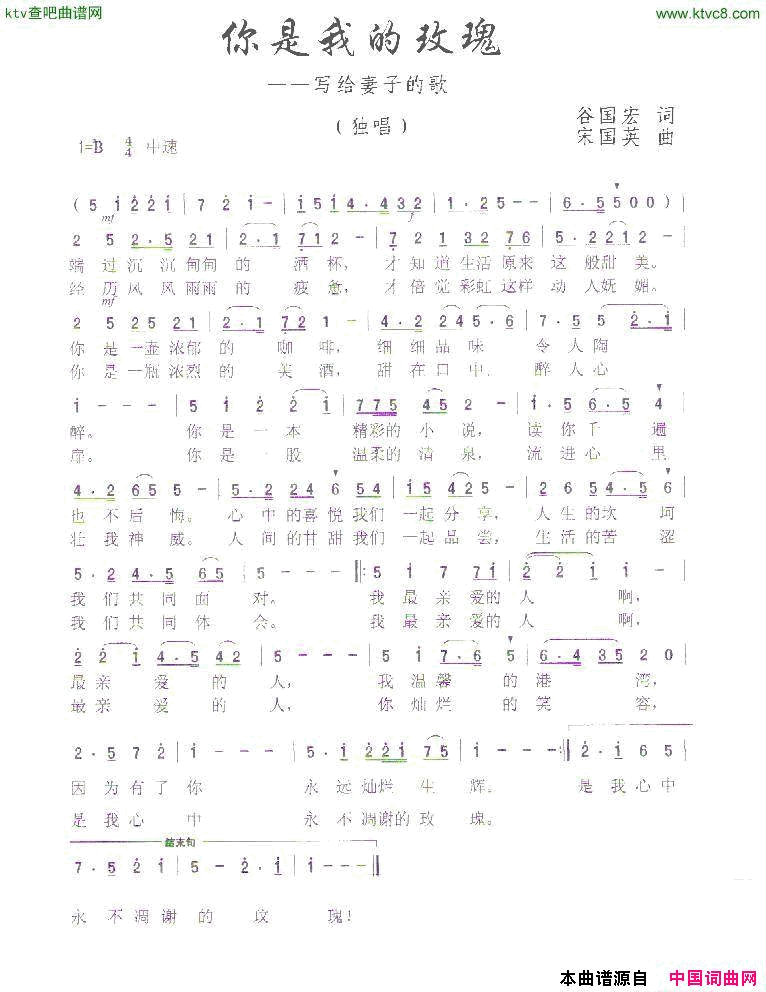 ktv查吧曲谱网
www.ktvc8.com
你是我的玫瑰
——写给妻子的歌
（独唱）
谷国宏 词
宋国英 曲
1=B 4/4 中速
( 5 1 2 2 1 | 7 2 1 - | 1 5 1 4 · 4 3 2 | 1 · 2 5 - - | 6 · 5 5 5 0 0 )
mf f
2 5 2 · 5 2 1 | 2 · 1 7 1 2 - | 7 2 1 3 2 7 6 | 5 · 2 2 1 2 - |
端过沉沉甸甸的 酒杯，才知道生活原来这般甜美。
经历风风雨雨的 疲惫，才倍觉彩虹这样动人妩媚。
mf
2 5 2 5 2 1 | 2 · 1 7 2 1 - | 4 · 2 2 4 5 · 6 | 7 · 5 5 2 · 1 |
你是一壶浓郁的 咖啡，细细品味 令人陶
你是一瓶浓烈的 美酒，甜在口中 醉人心
1 - - - | 5 1 2 2 1 | 7 7 5 4 5 2 - | 1 · 5 6 · 5 4 |
醉。 你是一本 精彩的小说，读你千遍
扉。 你是一股 温柔的清泉，流进心里
4 · 2 6 5 5 - | 5 · 2 2 4 6 5 4 | 1 5 4 2 5 - | 2 6 5 4 · 5 4 |
也不后悔。心中的喜悦我们一起分享，人生的坎坷
壮我神威。人间的甘甜我们一起品尝，生活的苦涩
5 · 2 4 · 5 6 5 | 5 - - - |: 5 1 7 7 1 | 2 2 1 1 - |
我们共同面对。 我最亲爱的人 啊，
我们共同体会。 我最亲爱的人 啊，
2 2 1 4 · 5 4 2 | 5 - - - | 5 1 7 · 6 5 | 6 · 4 3 5 2 0 |
最亲爱的人， 我温馨的港湾，
最亲爱的人， 你灿烂的笑容，
2 · 5 7 2 | 1 - - - | 5 · 1 2 2 1 7 5 | 1 - - - :| 2 · 1 6 5 |
因为有了你 永远灿烂生辉。 是我心中
是我心中 永不凋谢的玫瑰。
结束句
7 · 5 2 1 | 5 - 2 · 1 | 1 - - - ||
永不凋谢的玫瑰！
本曲谱源自 中国词曲网